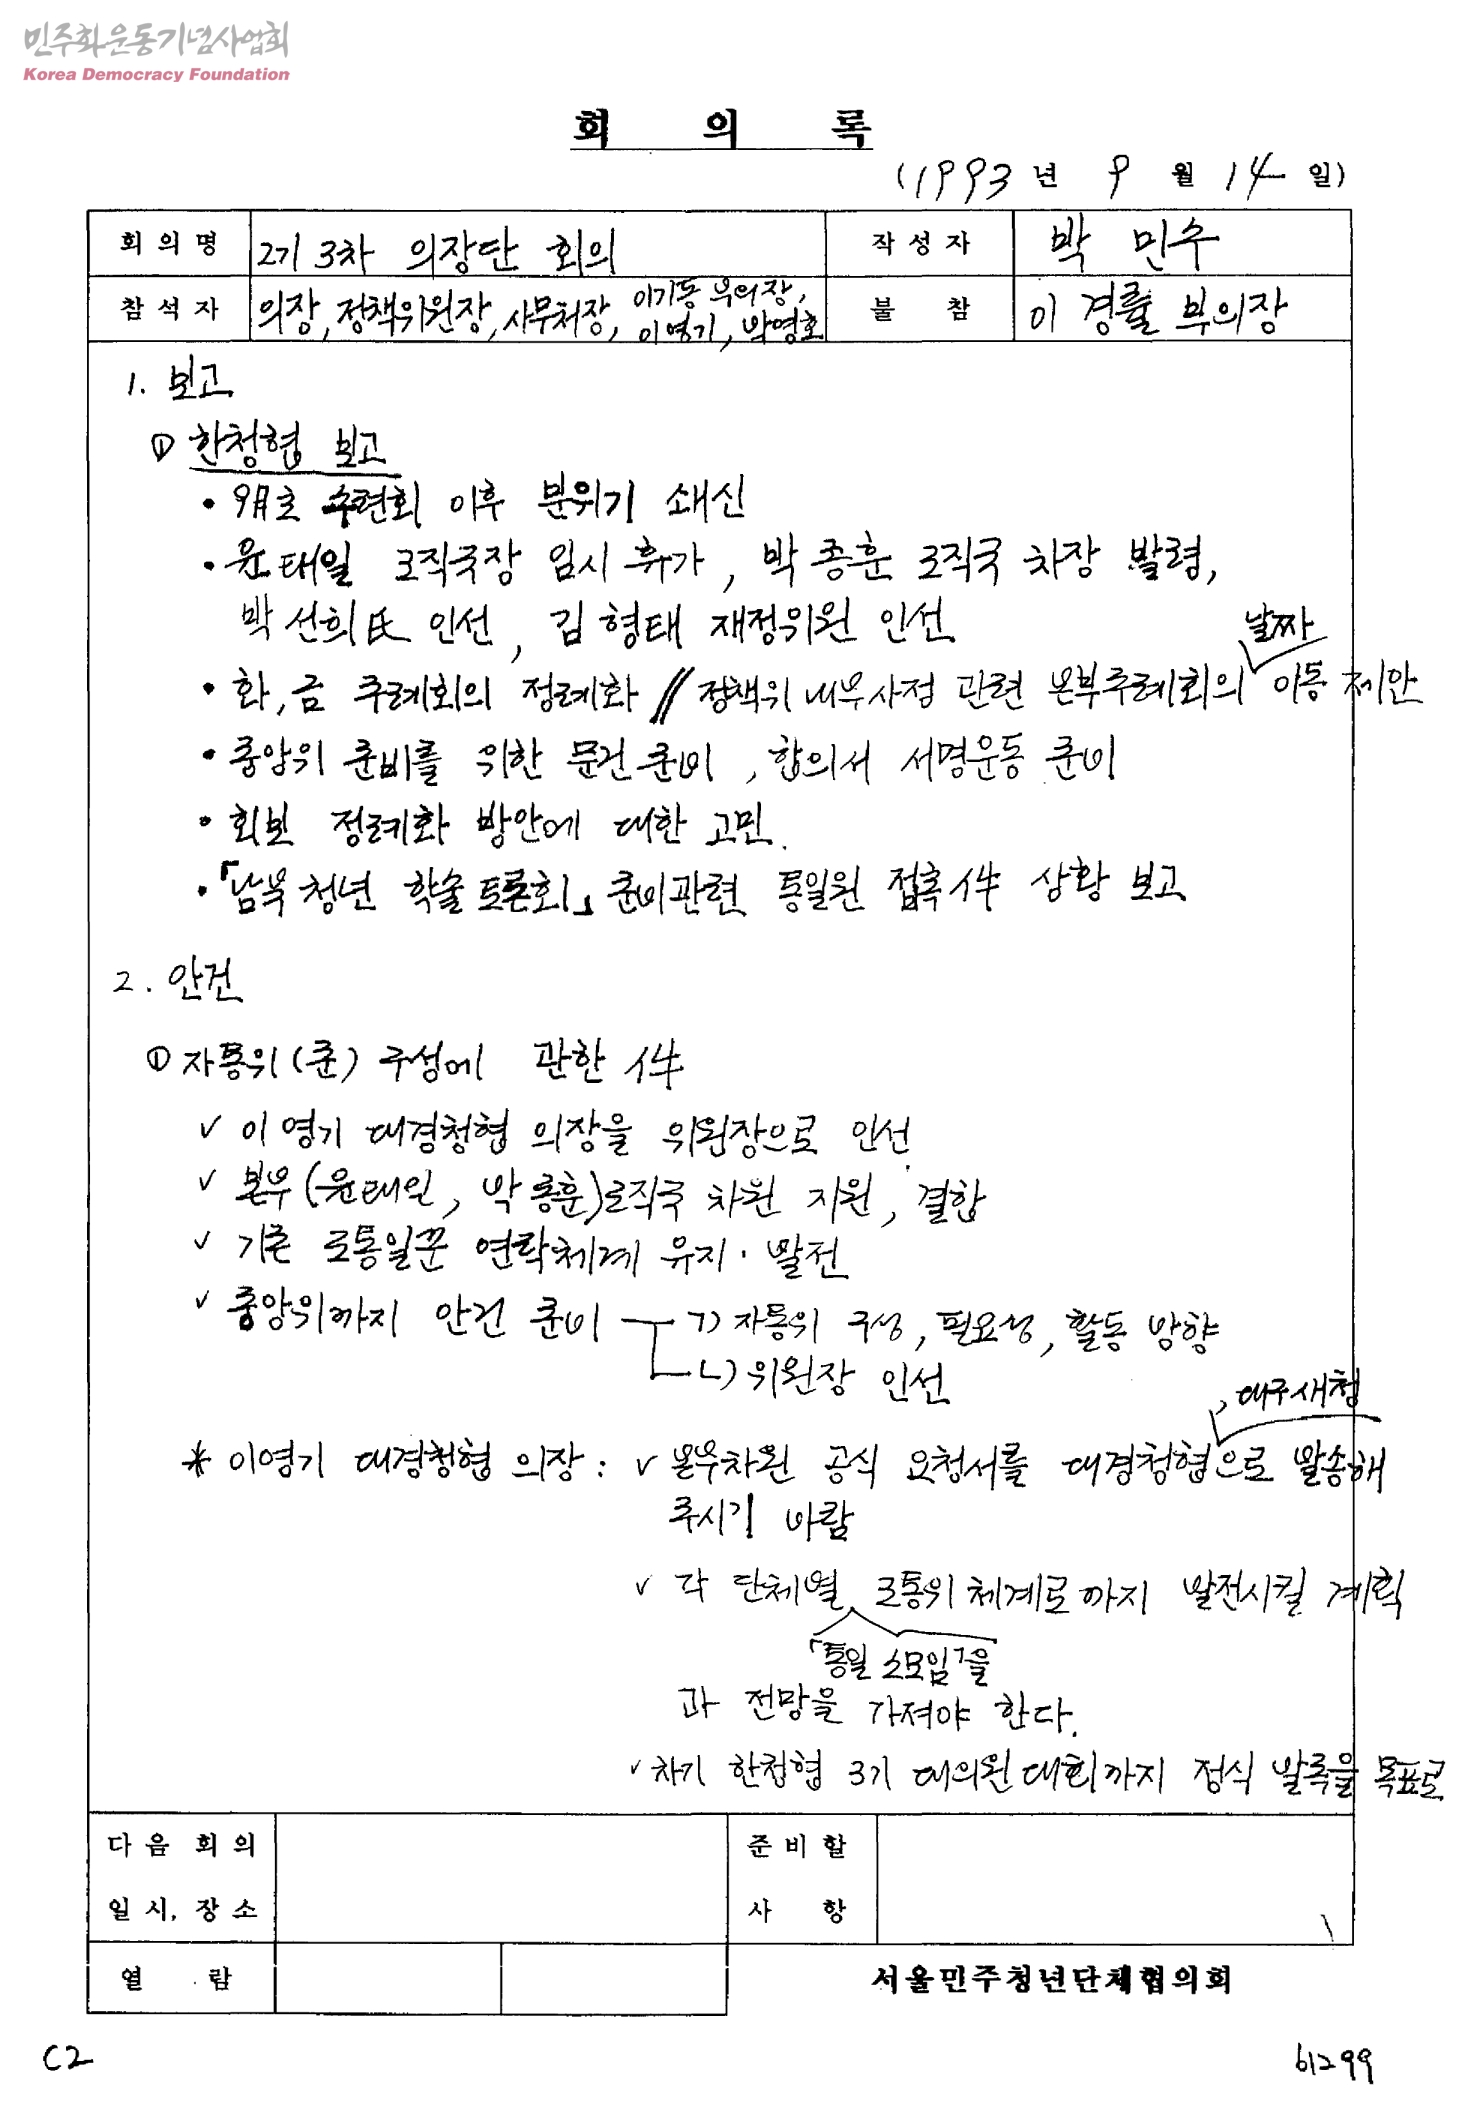 민주화운동기념사업회
Korea Democracy Foundation
회 의 록
(1993 년 9 월 14 일)
회 의 명 2기 3차 의장단 회의 작 성 자 박 민수
참 석 자 의장, 정책위원장, 사무처장, 이기동 부의장, 이영기, 박영호 불 참 이 경률 부의장
1. 보고
① 한청협 보고
• 9月초 수련회 이후 분위기 쇄신
• 윤태일 조직국장 임시 휴가, 박종훈 조직국 차장 발령,
박선희氏 인선, 김형태 재정위원 인선
날짜
• 화,금 주례회의 정례화 // 정책위 내부사정 관련 본부주례회의 이동 제안
• 중앙위 준비를 위한 문건준비, 합의서 서명운동 준비
• 회보 정례화 방안에 대한 고민.
• 「남북청년 학술토론회」 준비관련 통일원 접촉件 상황 보고
2. 안건
① 자통위(준) 구성에 관한 件
✓ 이영기 대경청협 의장을 위원장으로 인선
✓ 본부(윤태일, 박종훈)조직국 차원 지원, 결합
✓ 기존 조통일꾼 연락체계 유지·발전
✓ 중앙위까지 안건 준비 ㄱ) 자통위 구성, 필요성, 활동 방향
ㄴ) 위원장 인선
, 대구새청
* 이영기 대경청협 의장 : ✓ 본부차원 공식 요청서를 대경청협으로 발송해
주시기 바람
✓ 각 단체별 조통위체계로까지 발전시킬 계획
「통일 소모임」을
과 전망을 가져야 한다.
✓ 차기 한청협 3기 대의원대회까지 정식 발족을 목표로
다 음 회 의 준 비 할
일 시, 장 소 사 항
열 람 서울민주청년단체협의회
C2 61299